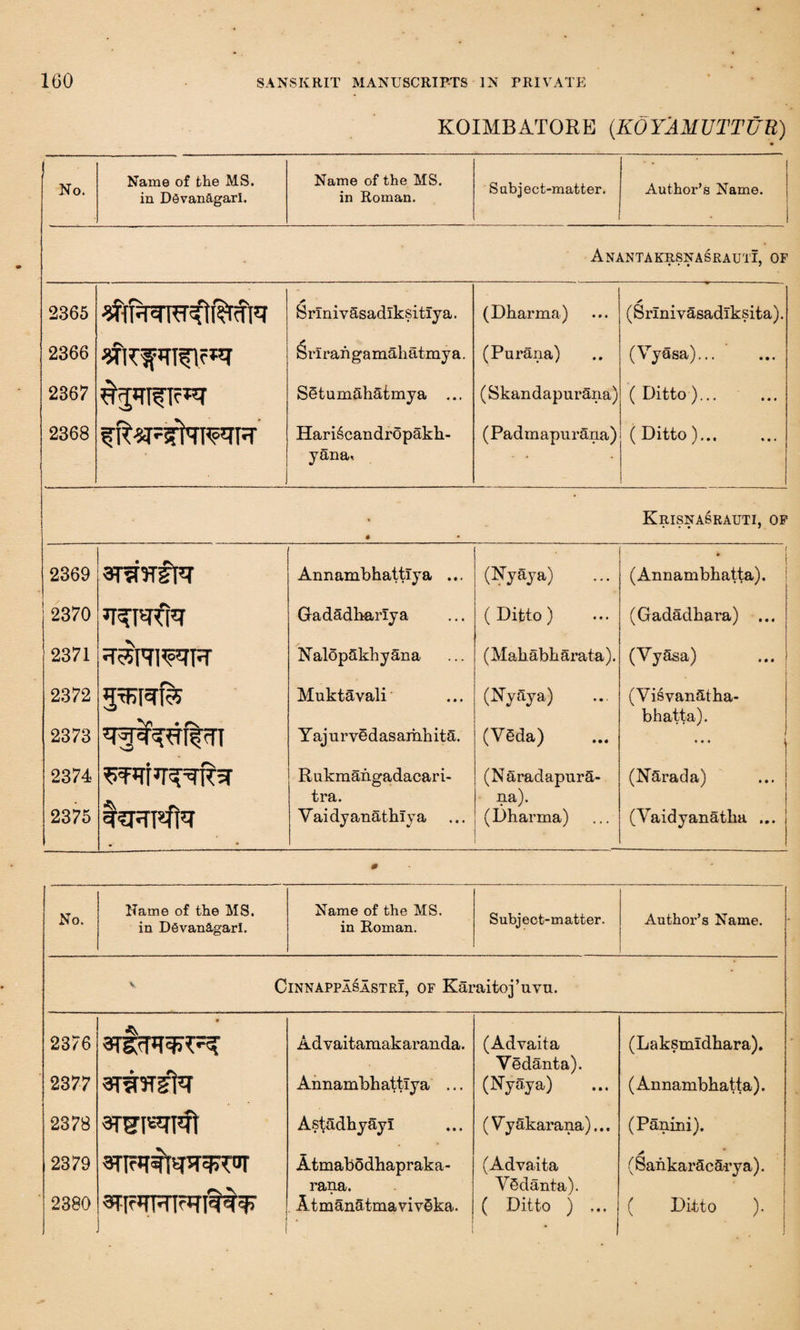 160 SANSKRIT MANUSCRIPTS IN PRIVATE
KOIMBATORE (KŌYAMUTTŪR)
No. | Name of the MS. in Dēvanāgarī. | Name of the MS. in Roman. | Subject-matter. | Author's Name.
ANANTAKRṢṆAŚRAUTĪ, OF
2365 श्रीनिवासदीक्षितीय Śrīnivāsadīkṣitīya. (Dharma) ... (Śrīnivāsadīkṣita).
2366 श्रीरङ्गमाहात्म्य Śrīraṅgamāhātmya. (Purāṇa) .. (Vyāsa)... ...
2367 सेतुमाहात्म्य Sētumāhātmya ... (Skandapurāṇa) ( Ditto )... ...
2368 हरिश्चन्द्रोपाख्यान Hariścandrōpākh- (Padmapurāṇa) ( Ditto )... ...
yāna.
KRISṆAŚRAUTI, OF
2369 अन्नंभट्टीय Annambhaṭṭīya ... (Nyāya) ... (Annambhaṭṭa).
2370 गदाधरीय Gadādharīya ... ( Ditto ) ... (Gadādhara) ...
2371 नळोपाख्यान Nalōpākhyāna ... (Mahābhārata). (Vyāsa) ...
2372 मुक्तावळि Muktāvali ... (Nyāya) .. (Viśvanātha-
bhaṭṭa).
2373 यजुर्वेदसंहिता Yajurvēdasaṁhitā. (Vēda) ... ...
2374 रुक्मांगदचरित्र Rukmāṅgadacari- (Nāradapurā- (Nārada) ...
tra. ṇa).
2375 वैद्यनाथीय Vaidyanāthīya ... (Dharma) ... (Vaidyanātha ...
No. | Name of the MS. in Dēvanāgarī. | Name of the MS. in Roman. | Subject-matter. | Author's Name.
CINNAPPĀŚĀSTRĪ, OF Kāraitoj'uvu.
2376 अद्वैतमकरन्द Advaitamakaranda. (Advaita (Lakṣmīdhara).
Vēdānta).
2377 अन्नंभट्टीय Annambhaṭṭīya ... (Nyāya) ... (Annambhaṭṭa).
2378 अष्टाध्यायी Aṣṭādhyāyī ... (Vyākaraṇa)... (Pāṇini).
2379 आत्मबोधप्रकरण Ātmabōdhapraka- (Advaita (Śaṅkarācārya).
raṇa. Vēdānta).
2380 आत्मानात्मविवेक Ātmānātmavivēka. ( Ditto ) ... ( Ditto ).